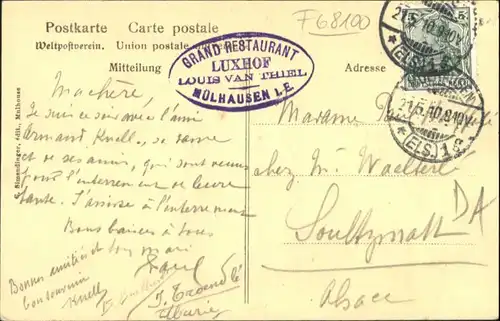 Postkarte Carte postale
Weltpostverein. Union postale
Mitteilung
Adresse
GRAND RESTAURANT
LUXHOF
LOUIS VAN THIEL
MÜLHAUSEN I.E.
F68100
21.5.10.9-10V.
*(ELS)1g
MÜLHAUSEN
21.5.10.9-10V.
*(ELS)1g
C. Simendinger, édit. Mulhouse
Ma chère,
Je suis ce soir avec l'ami
Armand Knell, sa dame
et ses amis, qui sont venus
pour l'enterrement de leur
tante. J'assiste à l'enterrement
Bons baisers à tous
Paul
Bonnes amitiés et
bon souvenir
Knell
Marie
Madame
chez M. Waelterlé
Soultzmatt
Alsace
DA